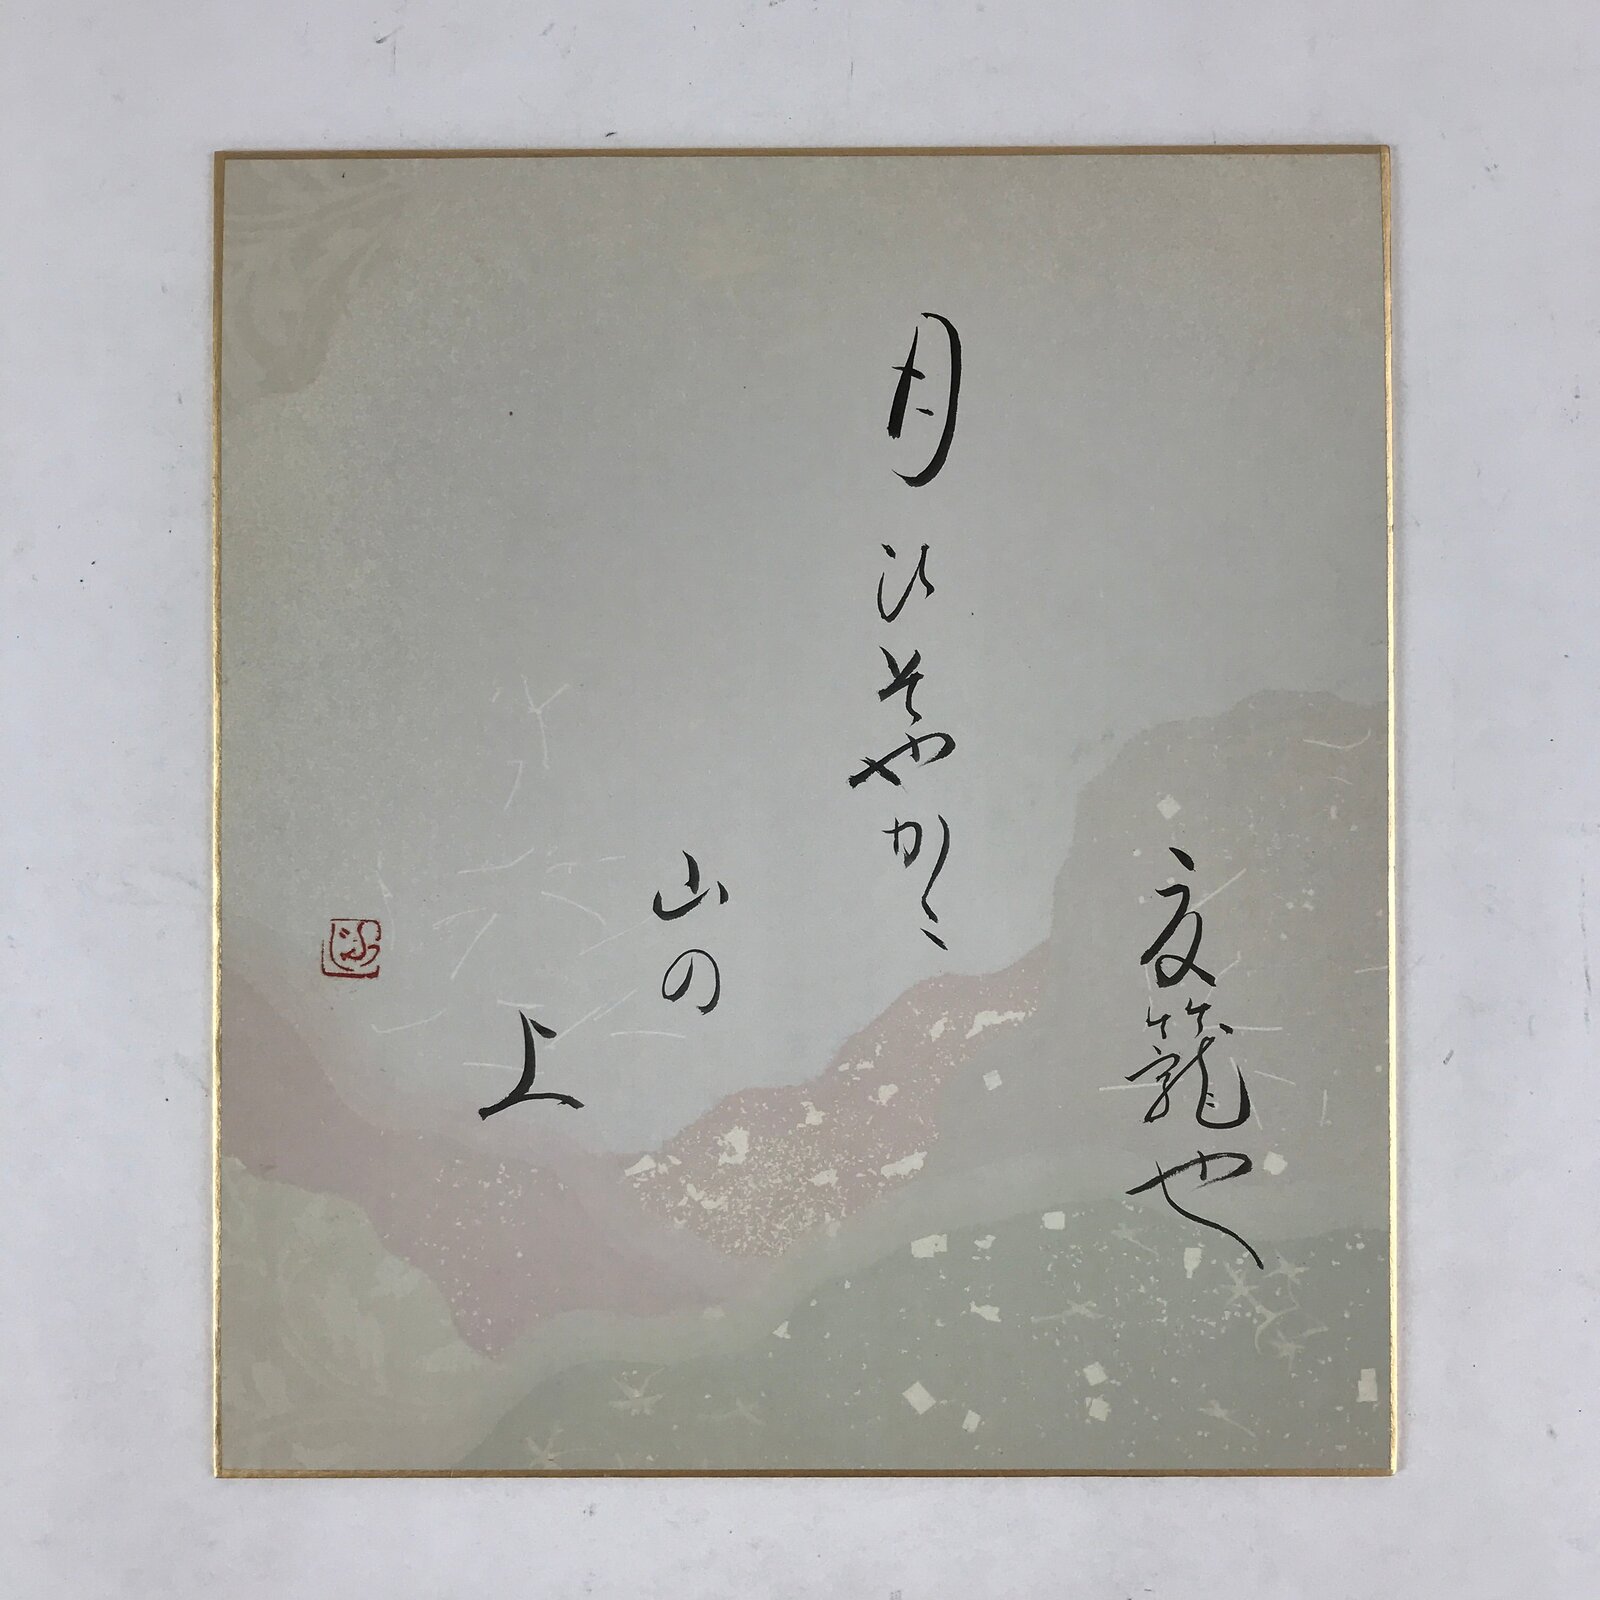 夏籠や
月ひそやかに
山の
上